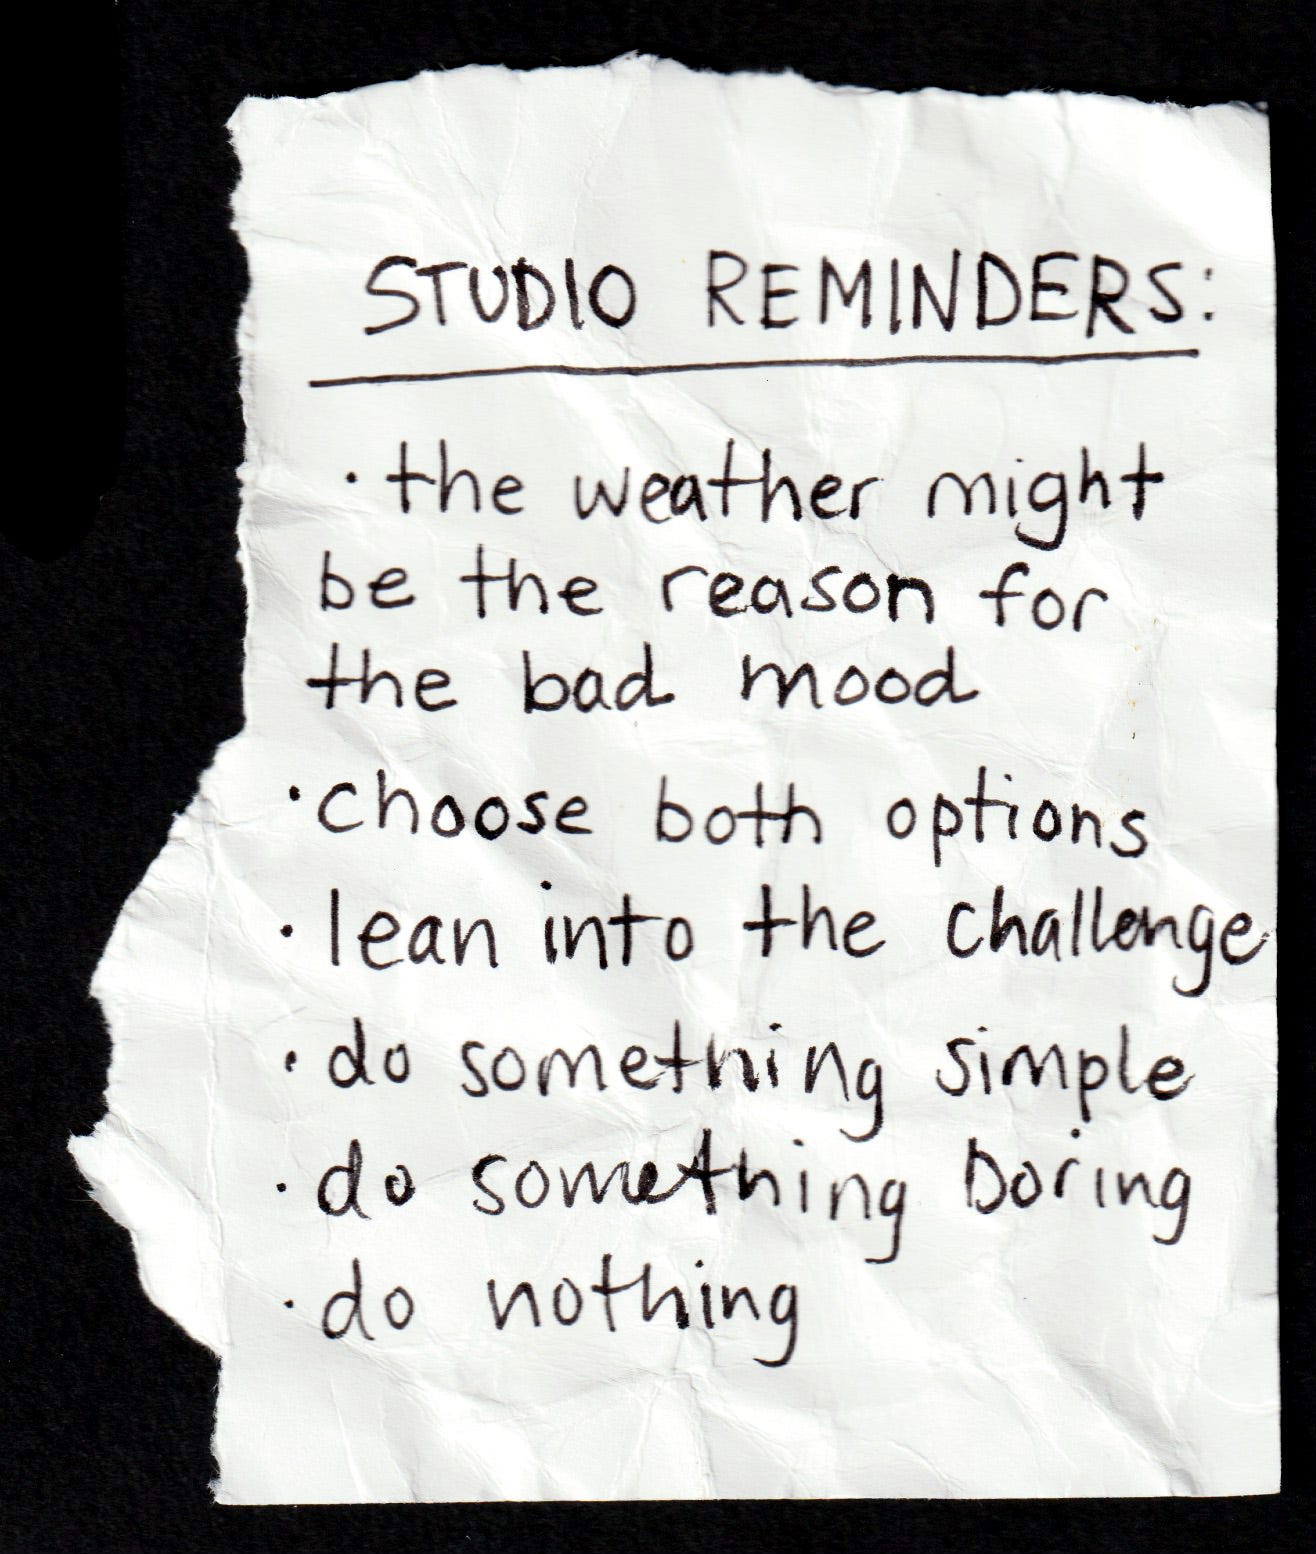 STUDIO REMINDERS:
· the weather might
be the reason for
the bad mood
· choose both options
· lean into the challenge
· do something simple
· do something boring
· do nothing